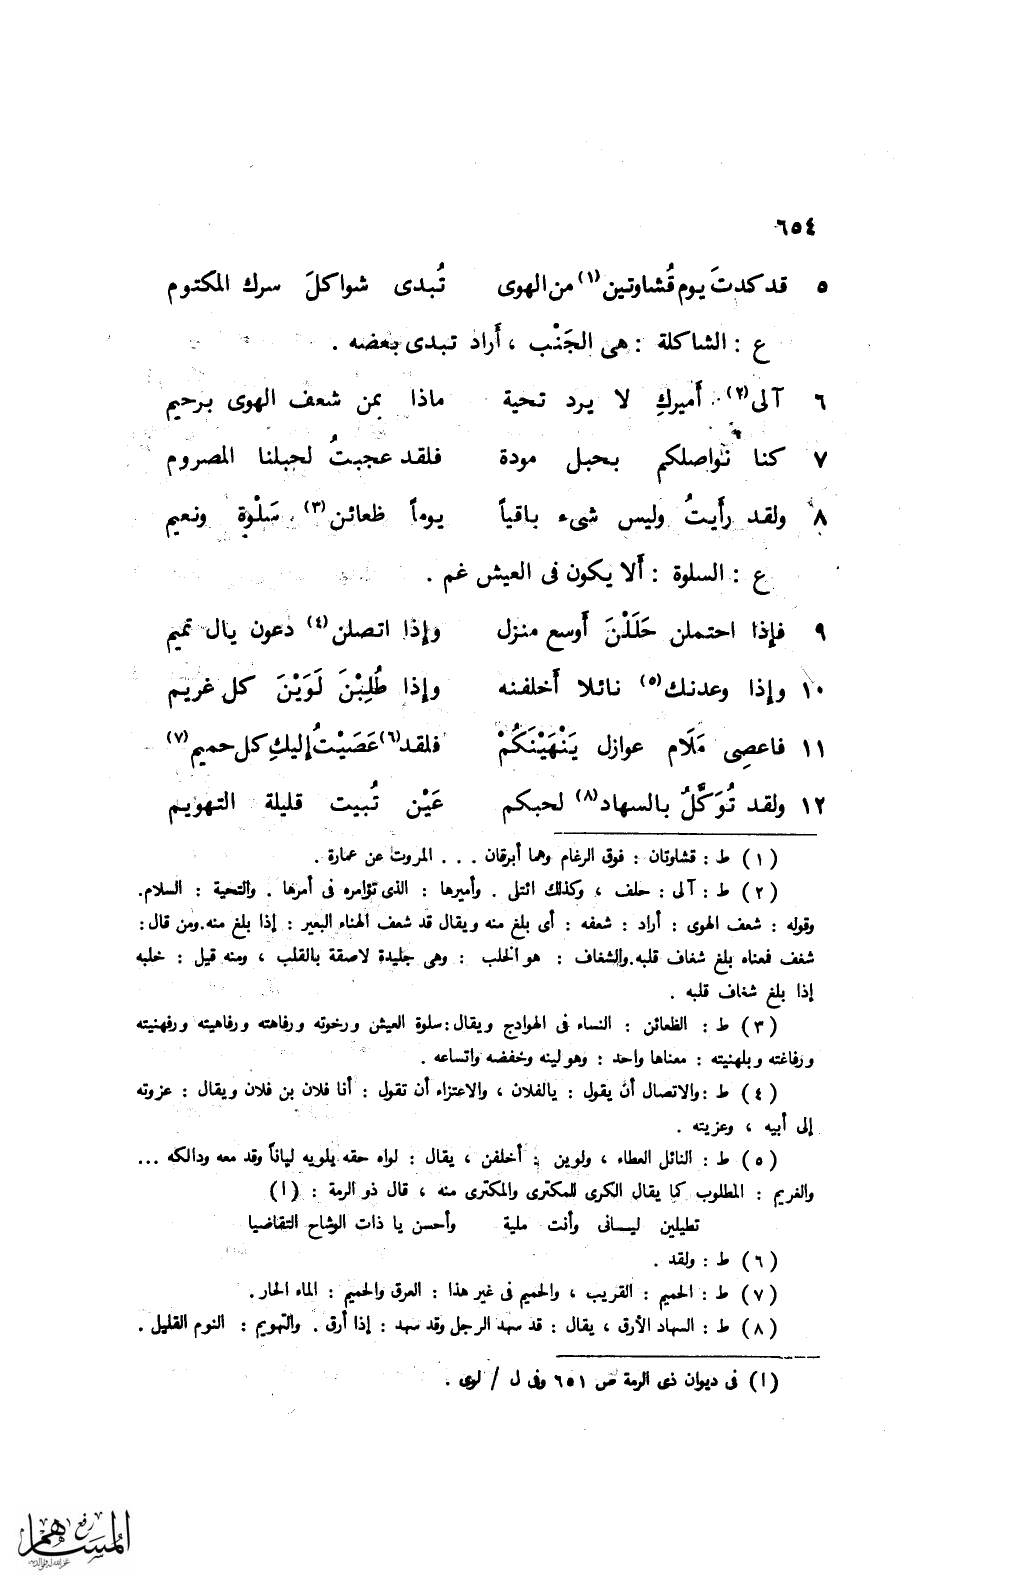 ٦٥٤
٥ قد كدتَ يوم قُشاوتين(١) من الهوى تُبدى شواكلَ سرك المكتوم
ع : الشاكلة : هى الجَنْب ، أراد تبدى بعضه .
٦ آلى(٢) أميركِ لا يرد تحية ماذا بمن شعف الهوى برحيم
٧ كنا نواصلكم بحبل مودة فلقد عجبتُ لحبلنا المصروم
٨ ولقد رأيتُ وليس شىء باقياً يوماً ظعائن(٣) سَلْوة ونعيم
ع : السلوة : ألا يكون فى العيش غم .
٩ فإذا احتملن حَلَلْنَ أوسع منزل وإذا اتصلن(٤) دعون يال تميم
١٠ وإذا وعدنك(٥) نائلا أخلفنه وإذا طُلِبْنَ لَوَيْنَ كل غريم
١١ فاعصِى مَلَام عوازل يَنْهَيْنَكُمْ فلقد(٦) عَصَيْتُ إليكِ كل حميم(٧)
١٢ ولقد تُوَكَّلُ بالسهاد(٨) لحبكم عَيْن تُبيت قليلة التهويم
(١) ط : قشاوتان : فوق الرغام وهما أبرقان . . . المروت عن عمارة .
(٢) ط : آلى : حلف ، وكذلك ائتلى . وأميرها : الذى تؤامره فى أمرها . والتحية : السلام.
وقوله : شعف الهوى : أراد : شعفه : أى بلغ منه ويقال قد شعف الهناء البعير : إذا بلغ منه.ومن قال :
شغف فعناه بلغ شغاف قلبه.والشغاف : هو الخلب : وهى جليدة لاصقة بالقلب ، ومنه قيل : خلبه
إذا بلغ شغاف قلبه .
(٣) ط : الظعائن : النساء فى الهوادج ويقال : سلوة العيش ورخوته ورفاهته ورفاهيته ورفهنيته
ورفاغته وبلهنيته : معناها واحد : وهو لينه وخفضه واتساعه .
(٤) ط : والاتصال أن يقول : يالفلان ، والاعتزاء أن تقول : أنا فلان بن فلان ويقال : عزوته
إلى أبيه ، وعزيته .
(٥) ط : النائل العطاء ، ولوين : أخلفن ، يقال : لواه حقه يلويه لياناً وقد معه ودالكه ...
والغريم : المطلوب كما يقال الكرى للمكترى والمكترى منه ، قال ذو الرمة : (ا)
تطيلين ليـانى وأنت ملية وأحسن يا ذات الوشاح التقاضيا
(٦) ط : ولقد .
(٧) ط : الحميم : القريب ، والحميم فى غير هذا : العرق والحميم : الماء الحار .
(٨) ط : السهاد الأرق ، يقال : قد سهد الرجل وقد سهد : إذا أرق . والتهويم : النوم القليل .
(ا) فى ديوان ذى الرمة ص ٦٥١ وفى ل / لوى .
رفع
المساهم